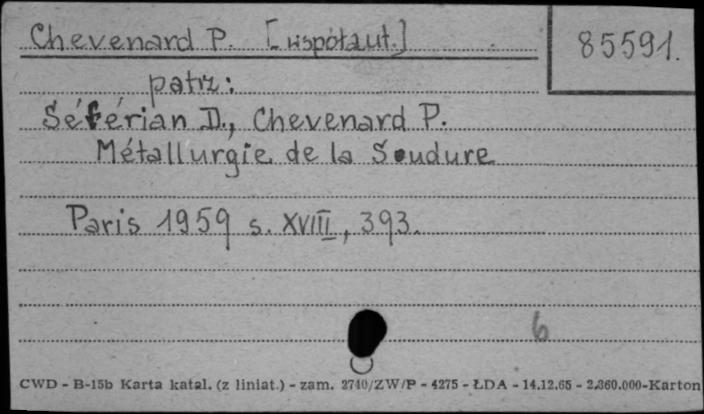 Chevenard P. [współaut.] 85591.
patrz:
Séférian D., Chevenard P.
Métallurgie de la Soudure
Paris 1959 s. XVIII, 393.
6
CWD - B-15b Karta katal. (z liniat.) - zam. 2740/ZW/P - 4275 - ŁDA - 14.12.65 - 2.360.000-Karton